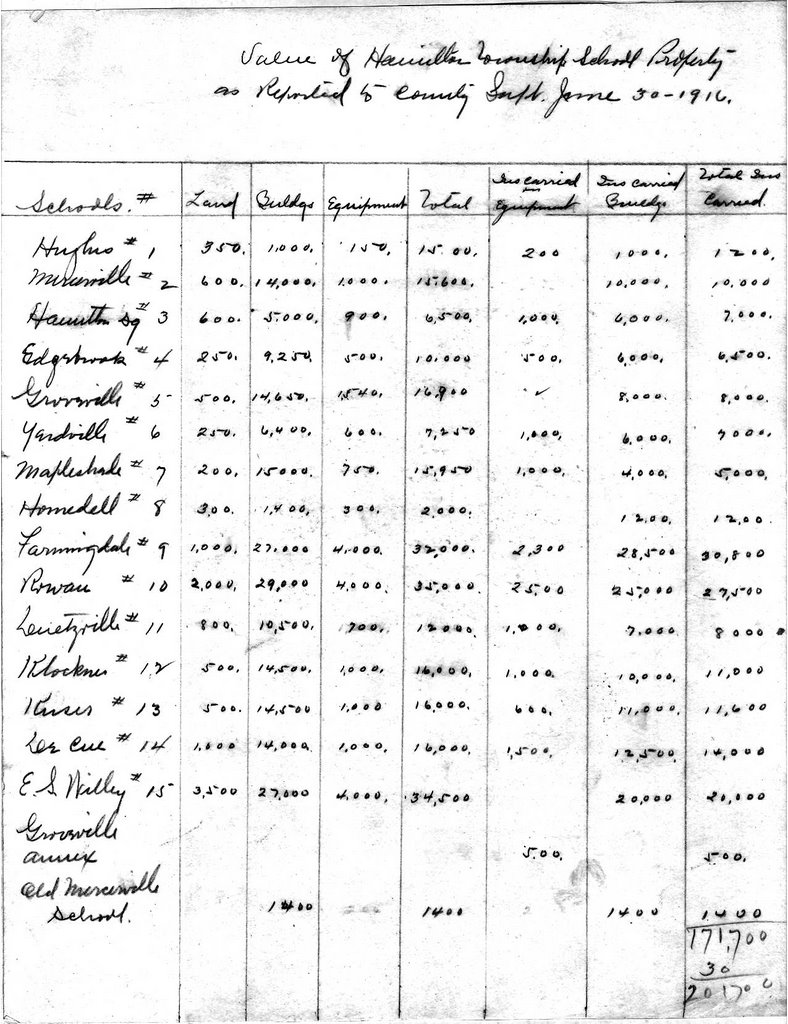 Value of Hamilton Township School Property
as Reported to County Supt. June 30-1916.
Schools. # Land Buldgs Equipment Total Ins carried Equipment Ins carried Bruldgs Total Ins Carried.
Hughes # 1 350. 1,000. 150. 15.00. 200 1000. 1200.
Mercerville # 2 600. 14,000. 1,000. 15.600. 10,000. 10,000
Hamilton Sq # 3 600. 5.000. 900. 6,500. 1,000. 6,000. 7,000.
Edgebrook # 4 250. 9,250. 500. 10.000 500. 6,000. 6,500.
Groveville # 5 500. 14,650. 1540. 16,900 ✓ 8,000. 8,000.
Yardville # 6 250. 6,400. 600. 7,250 1,000. 6,000. 7000.
Mapleshade # 7 200. 15000. 750. 15,950 1,000. 4,000. 5,000.
Homedell # 8 300. 1,400. 300. 2,000. 1200. 1200.
Farmingdale # 9 1,000. 27.000 4,000. 32,000. 2,300 28,500 30,800
Rowan # 10 2,000. 29,000 4,000. 35,000. 2500 25,000 27,500
# 11 800. 10,500. 700. 12000. 1,200. 7,000 8000
Klockner # 12 500. 14,500. 1,000. 16,000. 1,000. 10,000. 11,000
Kuser # 13 500. 14,500 1,000 16,000. 600. 11,000. 11,600
# 14 1,000 14,000. 1,000. 16,000. 1,500. 12,500 14,000
E. S. Willey # 15 3,500 27,000 4,000. 34,500 20,000 20,000
Groveville
annex 500. 500.
Old Mercerville
School. 1400 1400 1400 1400
171,700
30
201700